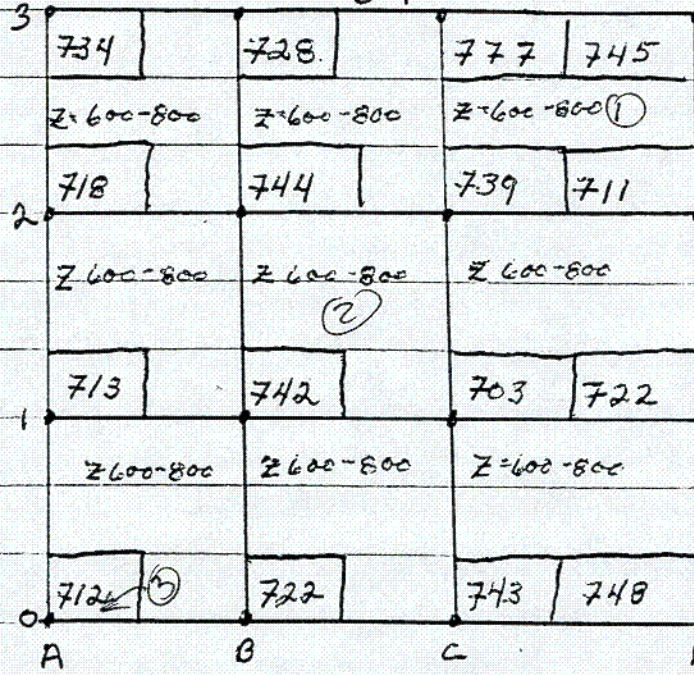 3
734 728. 777 745
Z=600-800 Z=600-800 Z=600-800 1
718 744 739 711
2
Z 600-800 Z 600-800 Z 600-800
2
713 742 703 722
1
Z 600-800 Z 600-800 Z=600-800
712 3 722 743 748
0
A B C